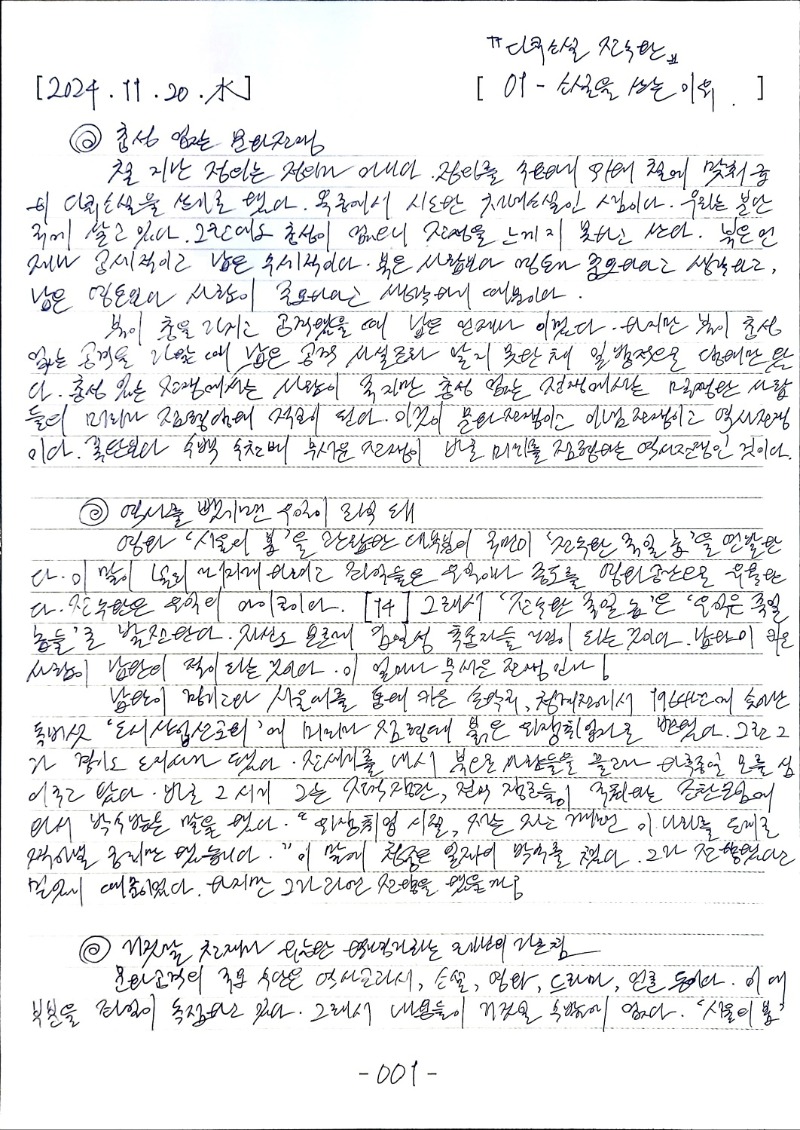 『다큐소설 전두환』
[2024. 11. 20. 水] [ 01 - 소설을 쓰는 이유. ]
◎ 총성 없는 문화전쟁
철 지난 정의는 정의가 아니다. 정의를 위해 철에 맞춰 급
히 다큐소설을 쓰기로 했다. 옥중에서 시도한 소설인 셈이다. 우리는 분단
국에 살고 있다. 그런데도 총성이 없으니 전쟁을 느끼지 못하고 산다. 북은 언
제나 공세적이고 남은 수세적이다. 북은 사람보다 영토가 중요하다고 생각하고,
남은 영토보다 사람이 중요하다고 생각하기 때문이다.
북이 총을 가지고 공격했을 때 남은 언제나 이겼다. 하지만 북이 총성
없는 공격을 가할 때 남은 공격 사실조차 알지 못한 채 일방적으로 당해만 왔
다. 총성 있는 전쟁에서는 사람이 죽지만 총성 없는 전쟁에서는 멀쩡한 사람
들이 미리가 점령당해 적이 된다. 이것이 문화전쟁이고 이념전쟁이고 역사전쟁
이다. 폭탄보다 수백 수천배 무서운 전쟁이 바로 머리를 점령하는 역사전쟁인 것이다.
◎ 역사를 빼앗기면 우익이 좌익 돼
영화 '서울의 봄'을 관람한 대부분의 국민이 '전두환 죽일 놈'을 연발한
다. 이 말이 널리 퍼지게 하려고 좌익들은 우익에다 중도를 영화관으로 유인한
다. 전두환은 우익의 아이콘이다. [74] 그래서 '전두환 죽일 놈'은 '우익은 죽일
놈들'로 발전한다. 자신도 모르게 김일성 추종자들 편이 되는 것이다. 남한이 키운
사람이 남한의 적이 되는 것이다. 이 얼마나 무서운 전쟁인가!
남한이 먹이고 서울대를 통해 키운 손학규, 청계천에서 1964년에 솟아난
독버섯 '도시산업선교회'에 머리가 점령돼 붉은 위장취업자로 변했다. 그런 그
가 경기도 도지사가 됐다. 전세기를 내서 북으로 사람들을 끌고가 하루종일 모를 심
어주고 왔다. 바로 그 시기 그는 장관, 전역 장군들이 주최하는 조찬모임에
와서 박수받는 말을 했다. "위장취업 시절, 저는 저는 깨끗한 이 나라를 도대로
엎어버릴 궁리만 했습니다." 이 말에 청중은 일제히 박수를 쳤다. 그가 전향했다고
믿었기 때문이었다. 하지만 그가 과연 전향을 했을까?
◎ 거짓말 천재가 유능한 혁명가라는 레닌의 가르침
문화공격의 주요 수단은 역사교과서, 소설, 영화, 드라마, 언론 등이다. 이 대
부분을 좌익이 독점하고 있다. 그래서 내용들이 거짓일 수밖에 없다. '서울의 봄'
-001-